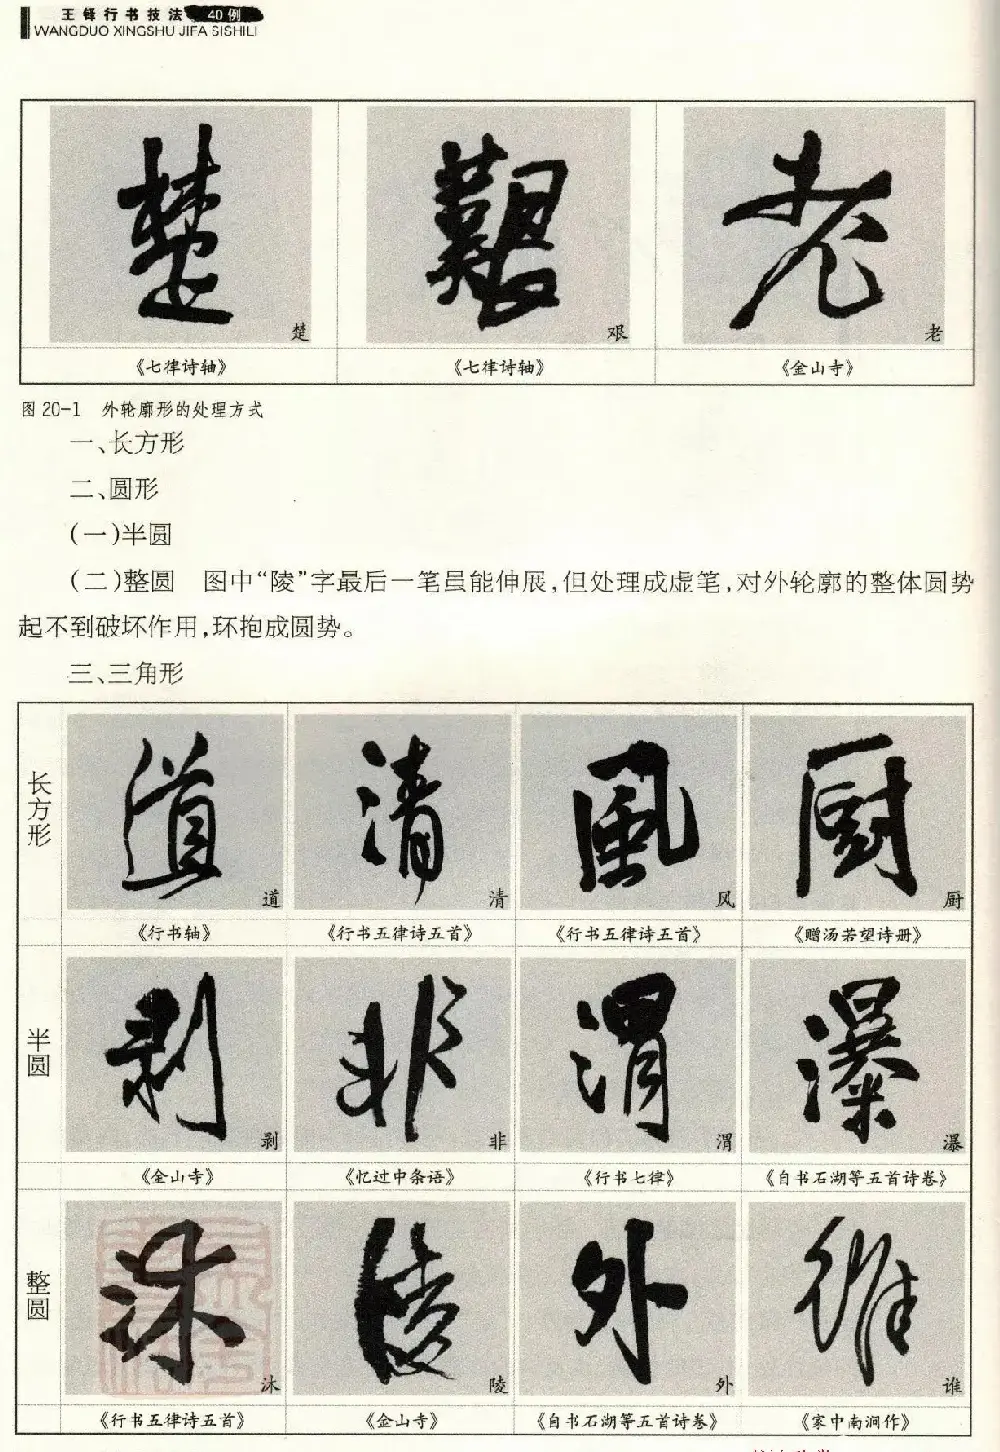 王铎行书技法40例
WANGDUO XINGSHU JIFA SISHILI
楚 艰 老
《七律诗轴》 《七律诗轴》 《金山寺》
图 20-1 外轮廓形的处理方式
一、长方形
二、圆形
(一)半圆
(二)整圆 图中“陵”字最后一笔虽能伸展,但处理成虚笔,对外轮廓的整体圆势
起不到破坏作用,环抱成圆势。
三、三角形
长方形
道 清 风 厨
《行书轴》 《行书五律诗五首》 《行书五律诗五首》 《赠汤若望诗册》
半圆
剥 非 渭 瀑
《金山寺》 《忆过中条语》 《行书七律》 《自书石湖等五首诗卷》
整圆
沐 陵 外 谁
《行书五律诗五首》 《金山寺》 《自书石湖等五首诗卷》 《家中南涧作》